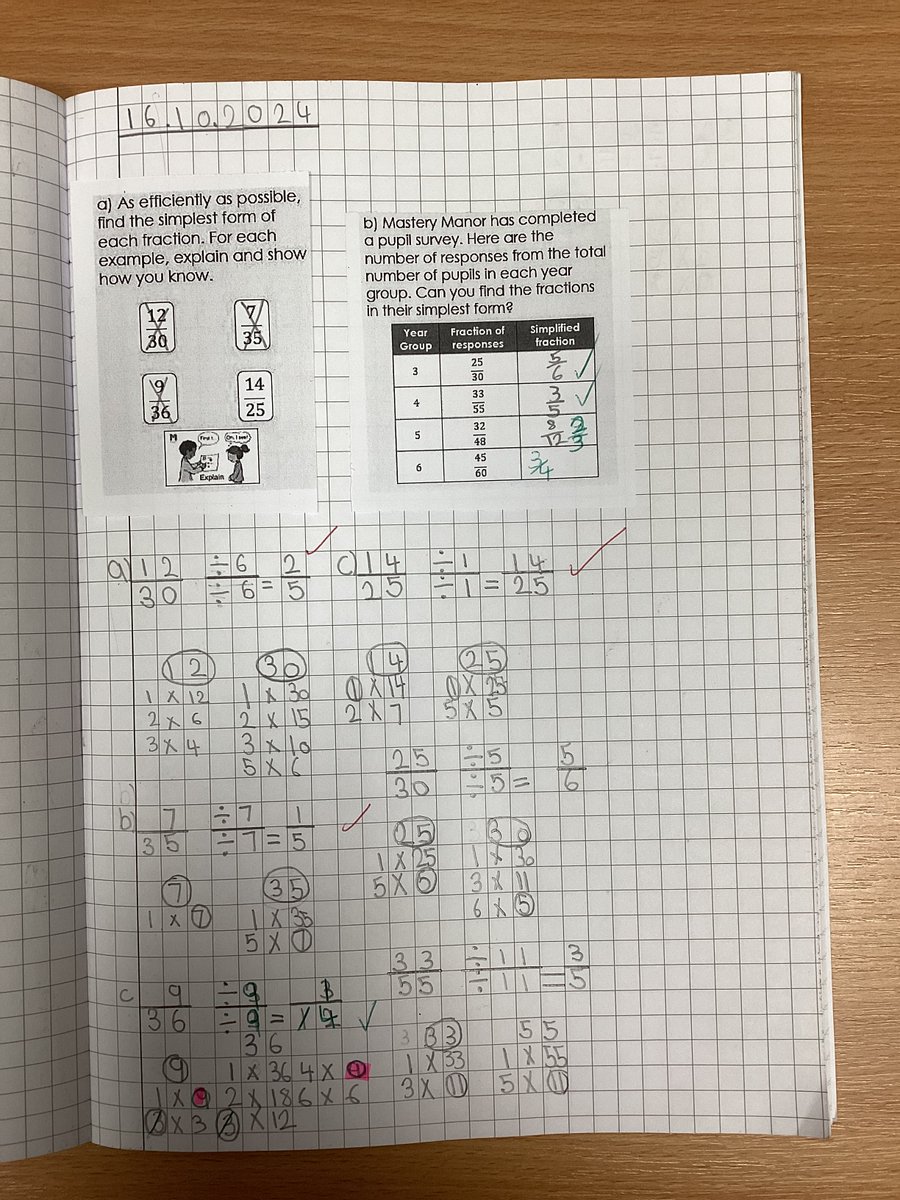 16.10.2024
a) As efficiently as possible,
find the simplest form of
each fraction. For each
example, explain and show
how you know.
12/30 7/35
9/36 14/25
M First I.. Oh, I see!
Explain
b) Mastery Manor has completed
a pupil survey. Here are the
number of responses from the total
number of pupils in each year
group. Can you find the fractions
in their simplest form?
Year Group Fraction of responses Simplified fraction
3 25/30 5/6 ✓
4 33/55 3/5 ✓
5 32/48 8/12 2/3
6 45/60 3/4
a) 12/30 ÷6/÷6 = 2/5 ✓
12 30
1 x 12 1 x 30
2 x 6 2 x 15
3 x 4 3 x 10
5 x 6
b) 7/35 ÷7/÷7 = 1/5 ✓
7 35
1 x 7 1 x 35
5 x 7
c 9/36 ÷9/÷9 = 1/4 ✓
36
9 1 x 36 4 x 9
1 x 9 2 x 18 6 x 6
3 x 3 3 x 12
c) 14/25 ÷1/÷1 = 14/25 ✓
14 25
1 x 14 1 x 25
2 x 7 5 x 5
25/30 ÷5/÷5 = 5/6
25 30
1 x 25 1 x 30
5 x 5 3 x 11
6 x 5
33/55 ÷11/÷11 = 3/5
33 55
1 x 33 1 x 55
3 x 11 5 x 11